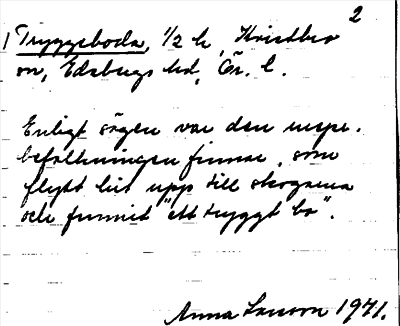 2
Tryggeboda, 1/2 h, Kvistbro
sn, Edsbergs hd, Ör. l.
Enligt sägen var den urspr.
befolkningen finnar, som
flytt hit upp till skogarna
och funnit "ett tryggt bo".
Anna Larsson 1971.